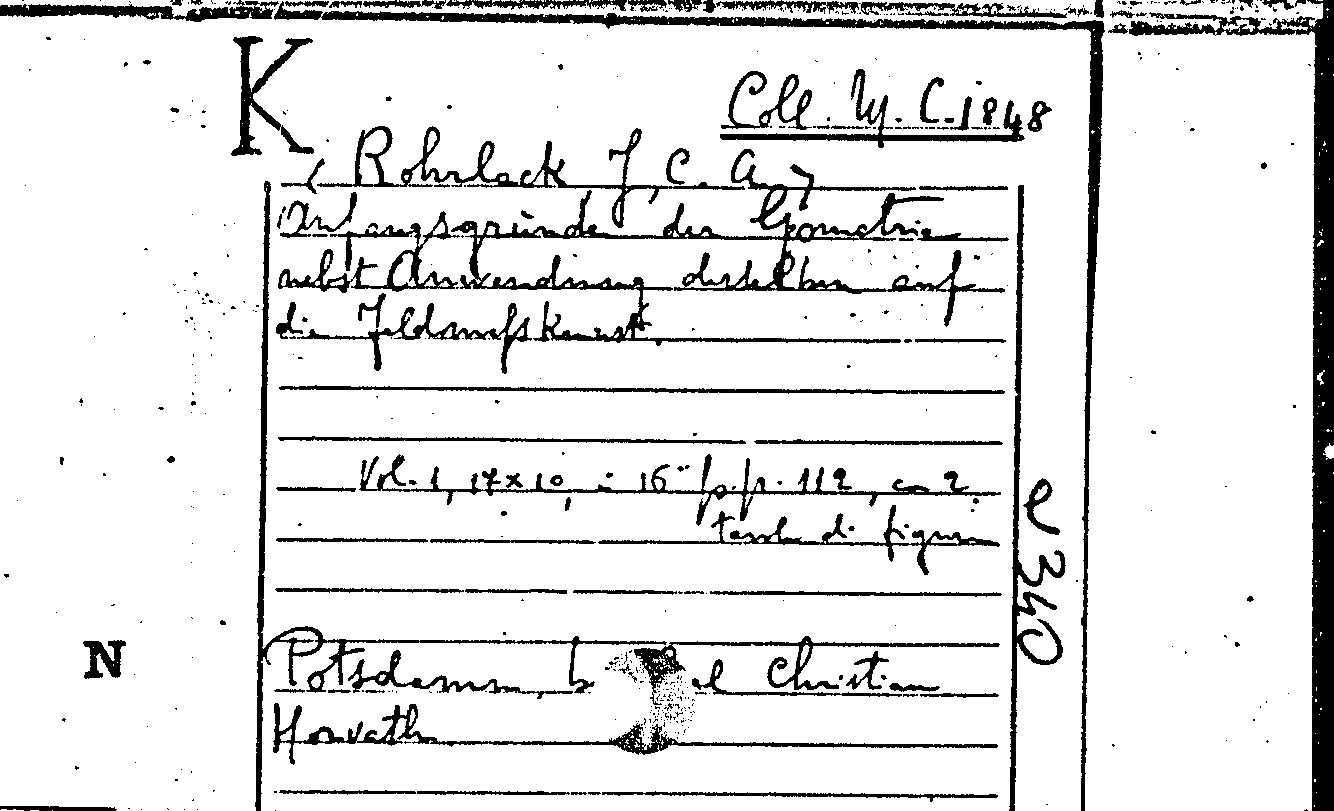 K
Coll. Y. C. 1848
< Rohrlack, J. C. A. >
Anfangsgründe der Geometrie
nebst Anwendung derselben auf
die Feldmesskunst.
Vol. 1, 17x10, in 16° pp. 112, con 2
tavole di figure
e 340
N
Potsdamm, b Christian
Horvath